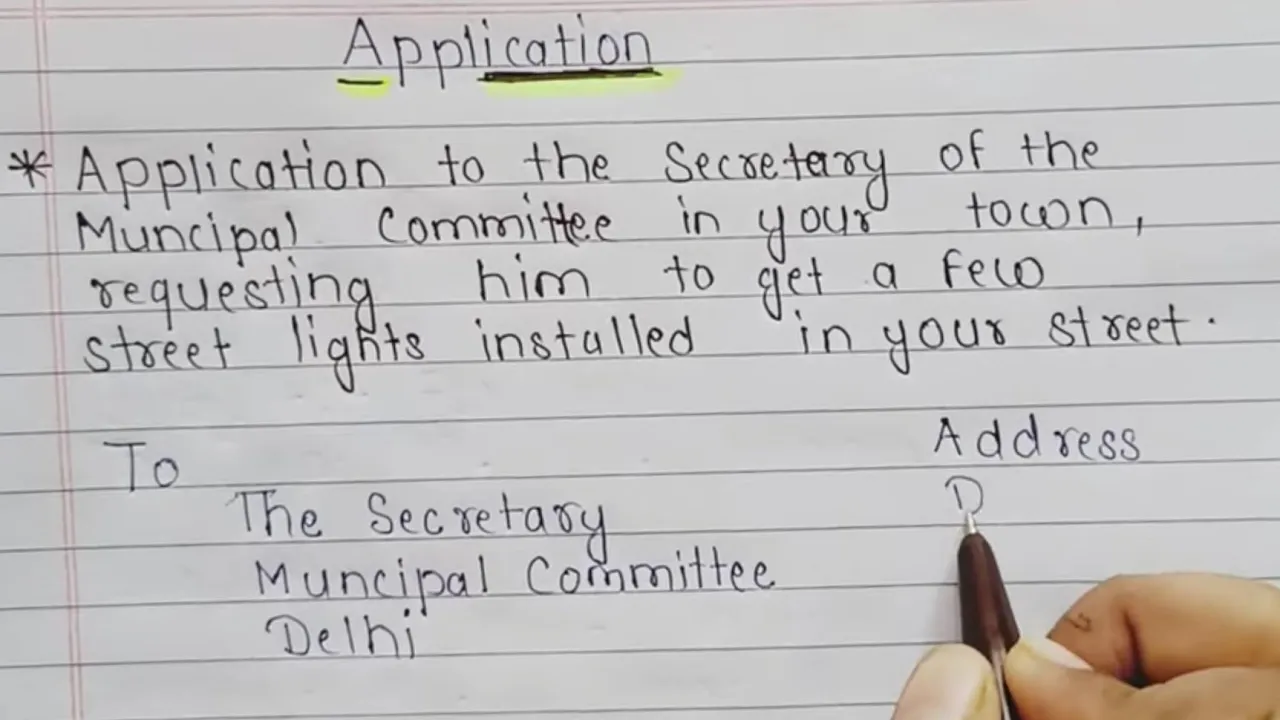 Application
* Application to the Secretary of the
Muncipal Committee in your town,
requesting him to get a few
street lights installed in your street.
To
Address
D
The Secretary
Muncipal Committee
Delhi